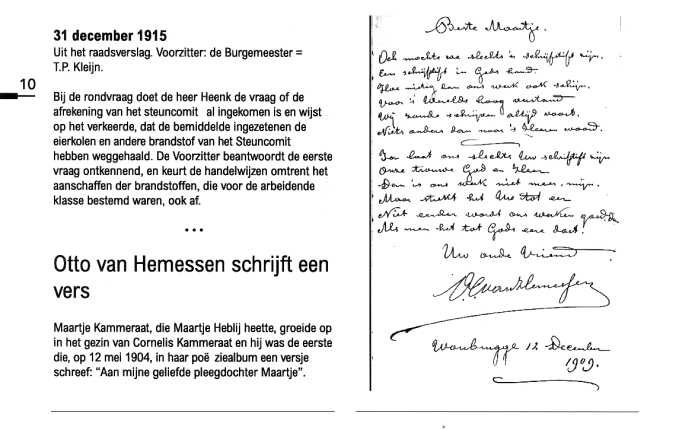 31 december 1915
Uit het raadsverslag. Voorzitter: de Burgemeester =
T.P. Kleijn.
10
Bij de rondvraag doet de heer Heenk de vraag of de
afrekening van het steuncomit al ingekomen is en wijst
op het verkeerde, dat de bemiddelde ingezetenen de
eierkolen en andere brandstof van het Steuncomit
hebben weggehaald. De Voorzitter beantwoordt de eerste
vraag ontkennend, en keurt de handelwijzen omtrent het
aanschaffen der brandstoffen, die voor de arbeidende
klasse bestemd waren, ook af.
• • •
Otto van Hemessen schrijft een
vers
Maartje Kammeraat, die Maartje Heblij heette, groeide op
in het gezin van Cornelis Kammeraat en hij was de eerste
die, op 12 mei 1904, in haar poë ziealbum een versje
schreef: “Aan mijne geliefde pleegdochter Maartje”.
Beste Maartje.
Och mochte we slechts 'n schrijfstift zijn.
Een schrijfstift in Gods hand.
Hoe nietig dan ons werk ook schijn,
Voor 's Werelds hoog verstand
Wij zoude schrijven altijd voort.
Niets anders dan naar 's Heeren woord.
Ja laat ons slechts Uw schrijfstift zijn
Onze trouwe God en Heer
Dan is ons werk niet meer mijn.
Maar strekt het Uw tot eer
Niet eerder wordt ons werken goed.
Als men het tot Gods eere doet!
Uw oude Vriend
O.C. van Hemessen
Woubrugge 12 December
1909.